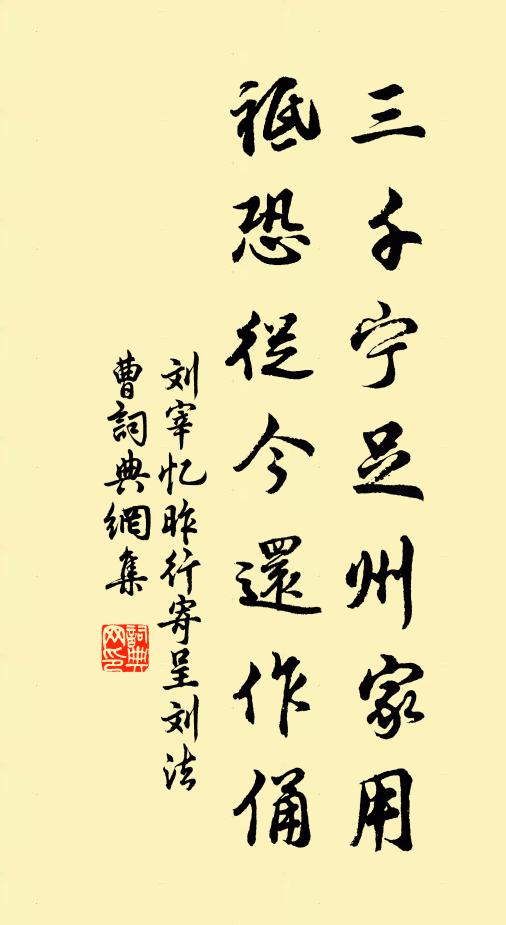 三千宁足州家用
祗恐從今還作俑
刘宰忆昨行寄呈刘法
曹詞典網集
詞典网印